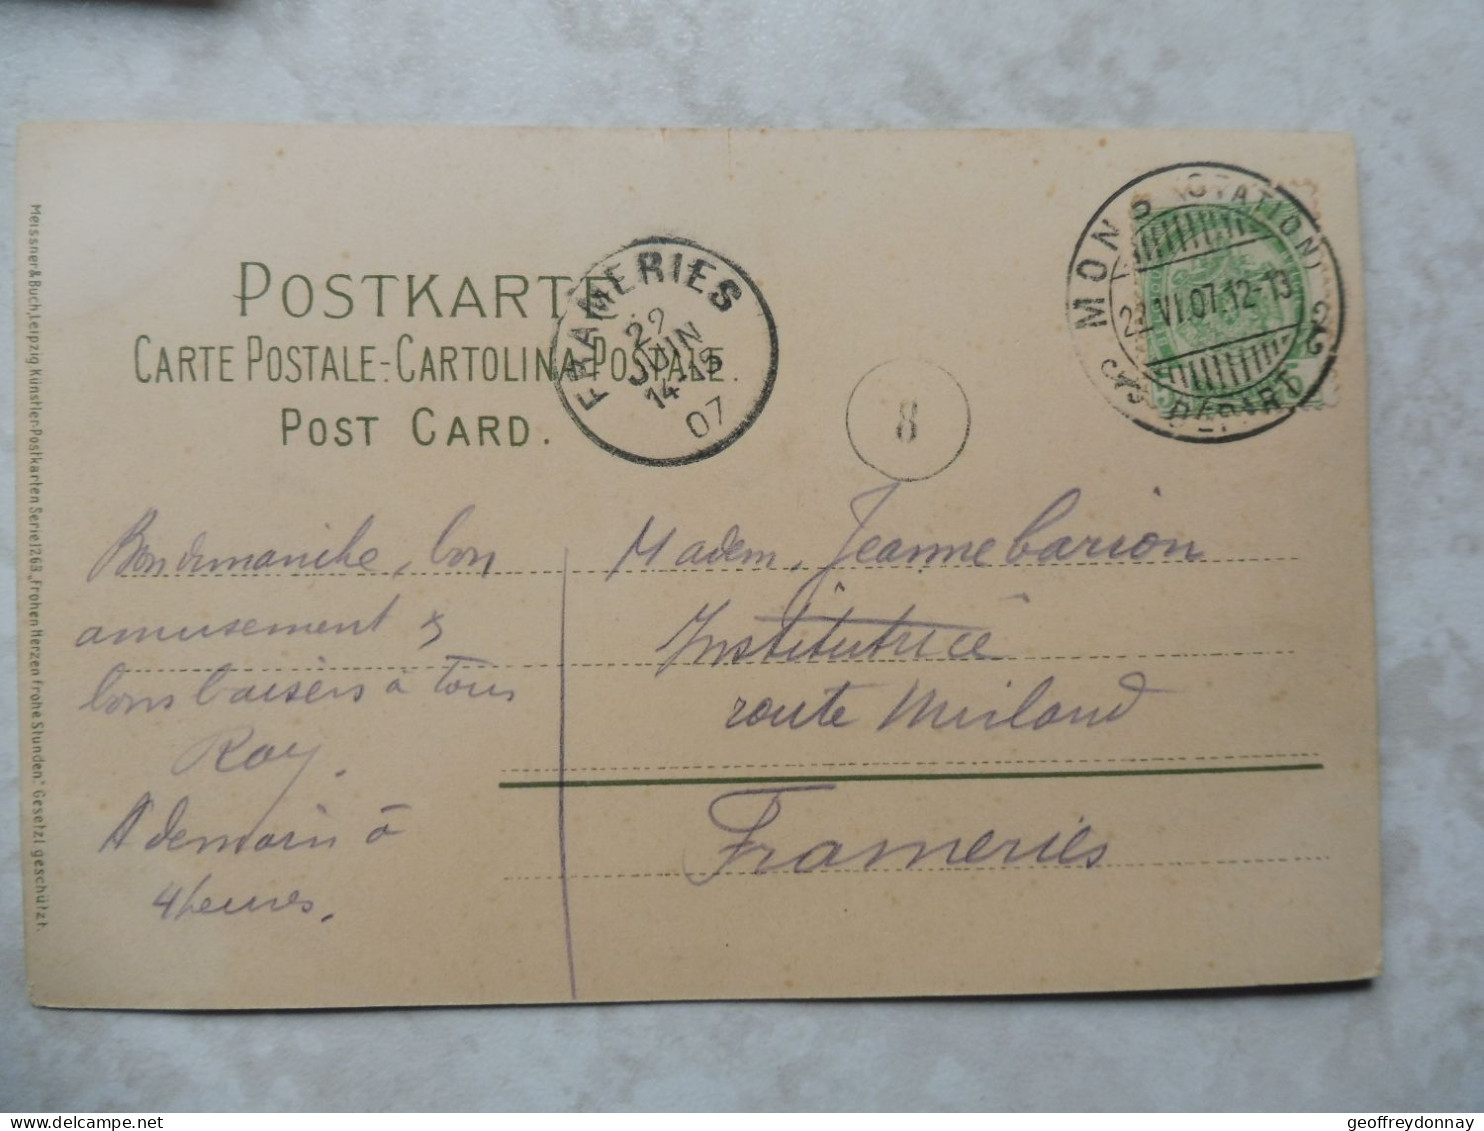 POSTKARTE
CARTE POSTALE-CARTOLINA POSTALE.
POST CARD.
FRAMERIES
29
JUIN
14-15
07
8
MONS (STATION)
VI.07.12-13
DÉPART
Bon dimanche, bon
amusement &
bons baisers à tous
Ray.
A demain à
4 heures.
Madem. Jeanne Carion
Institutrice
route
Frameries
Meissner & Buch, Leipzig. Künstler-Postkarten Serie 1263 „Frohen Herzen frohe Stunden." Gesetzl geschützt.
geoffreydonnay